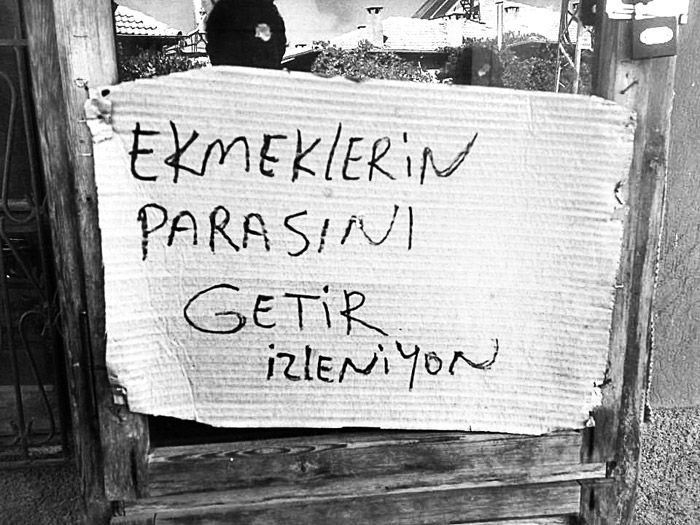 EKMEKLERİN
PARASINI
GETİR
İZLENİYON